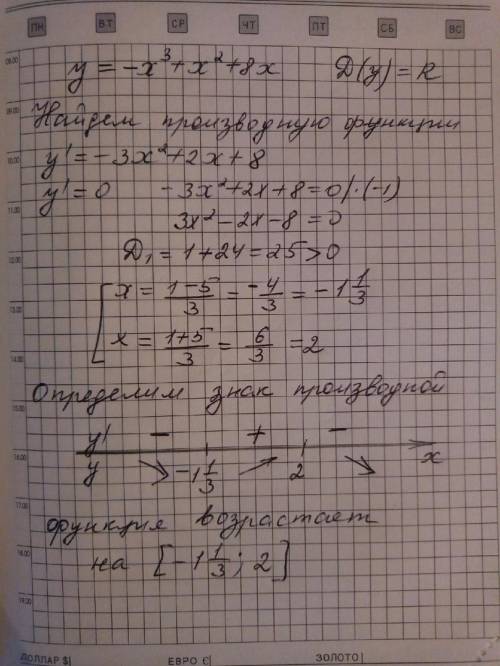 ПН ВТ СР ЧТ ПТ СБ ВС
08.00
y = -x³+x²+8x D(y) = R
09.00
Найдем производную функции
10.00
y' = -3x²+2x+8
y' = 0 -3x²+2x+8=0 |·(-1)
11.00
3x²-2x-8=0
12.00
D₁ = 1+24=25>0
x = (1-5)/3 = -4/3 = -1 1/3
13.00
x = (1+5)/3 = 6/3 = 2
14.00
Определим знак производной
15.00
y' - + -
16.00
y -1 1/3 2 x
17.00
функция возрастает
18.00
на [-1 1/3; 2]
19.00
ДОЛЛАР $| ЕВРО €| ЗОЛОТО|